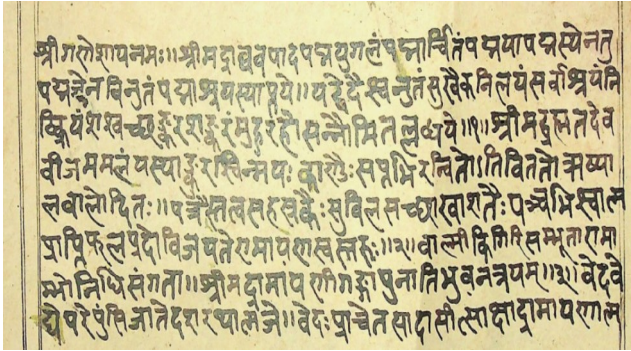 श्रीगणेशायनमः॥श्रीमद्राघवपादपद्मयुगलंपद्मार्चितंपद्मयापद्मस्थेनतु
पद्मजेनविनुतंपद्माश्रयस्याप्तये॥यद्वेदैश्चनुतंसुखैकनिलयंसर्वाश्रयंनि
ष्क्रियंशश्वच्छङ्करशङ्करंमुहुरहोसन्नौमितल्लब्धये॥१॥श्रीमद्ब्रह्मतदेव
वीजममलंयस्याङ्कुरश्चिन्मयःकाण्डैःसप्तभिरन्वितोऽतिविततोऋष्या
लवालोदितः॥पत्रैस्तत्वसहस्रकैःसुविलसच्छाखाशतैःपञ्चभिश्चात्म
प्राप्तिफलप्रदोविजयतेरामायणस्वस्तरुः॥२॥वाल्मीकिगिरिसम्भूतारामा
म्भोनिधिसंगता॥श्रीमद्रामायणीगङ्गापुनातिभुवनत्रयम्॥३॥वेदवे
द्येपरेपुंसिजातेदशरथात्मजे॥वेदःप्राचेतसादासीत्साक्षाद्रामायणात्म